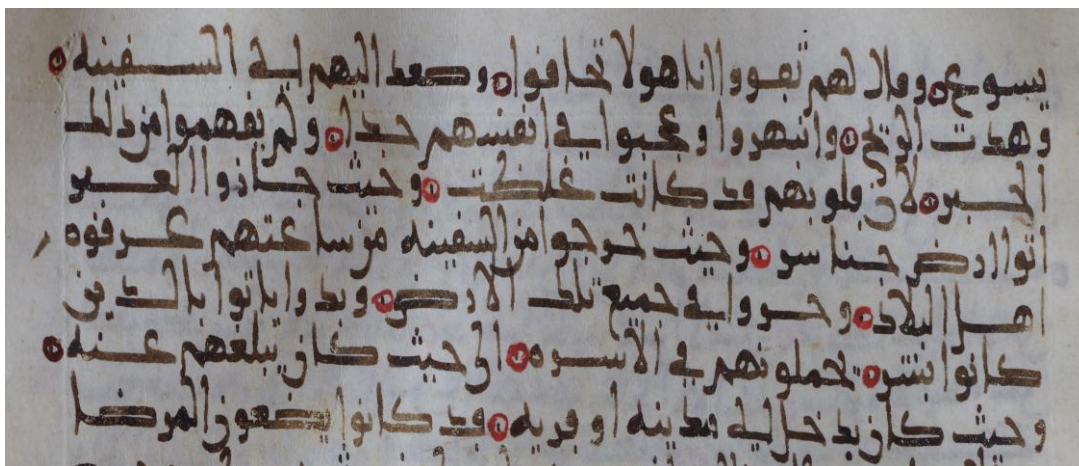 يسوع وقال لهم ثقووا انا هو لا تخافوا وصعد اليهم الى السفينه
وهدت الريح وانبهروا وعجبوا في انفسهم جدا ولم يفهموا من ذلك
الخبز لان قلوبهم قد كانت غلظت وحيث جازوا العبر
اتوا ارض جناسر وحيث خرجوا من السفينه من ساعتهم عرفوه
اهل البلاد وجروا في جميع تلك الارض وبدوا ياتوا بالذين
كانوا بشر يحملونهم في الاسره الى حيث كان يبلغهم عنه
وحيث كان يدخل الى مدينه او قريه قد كانوا يضعون المرضا